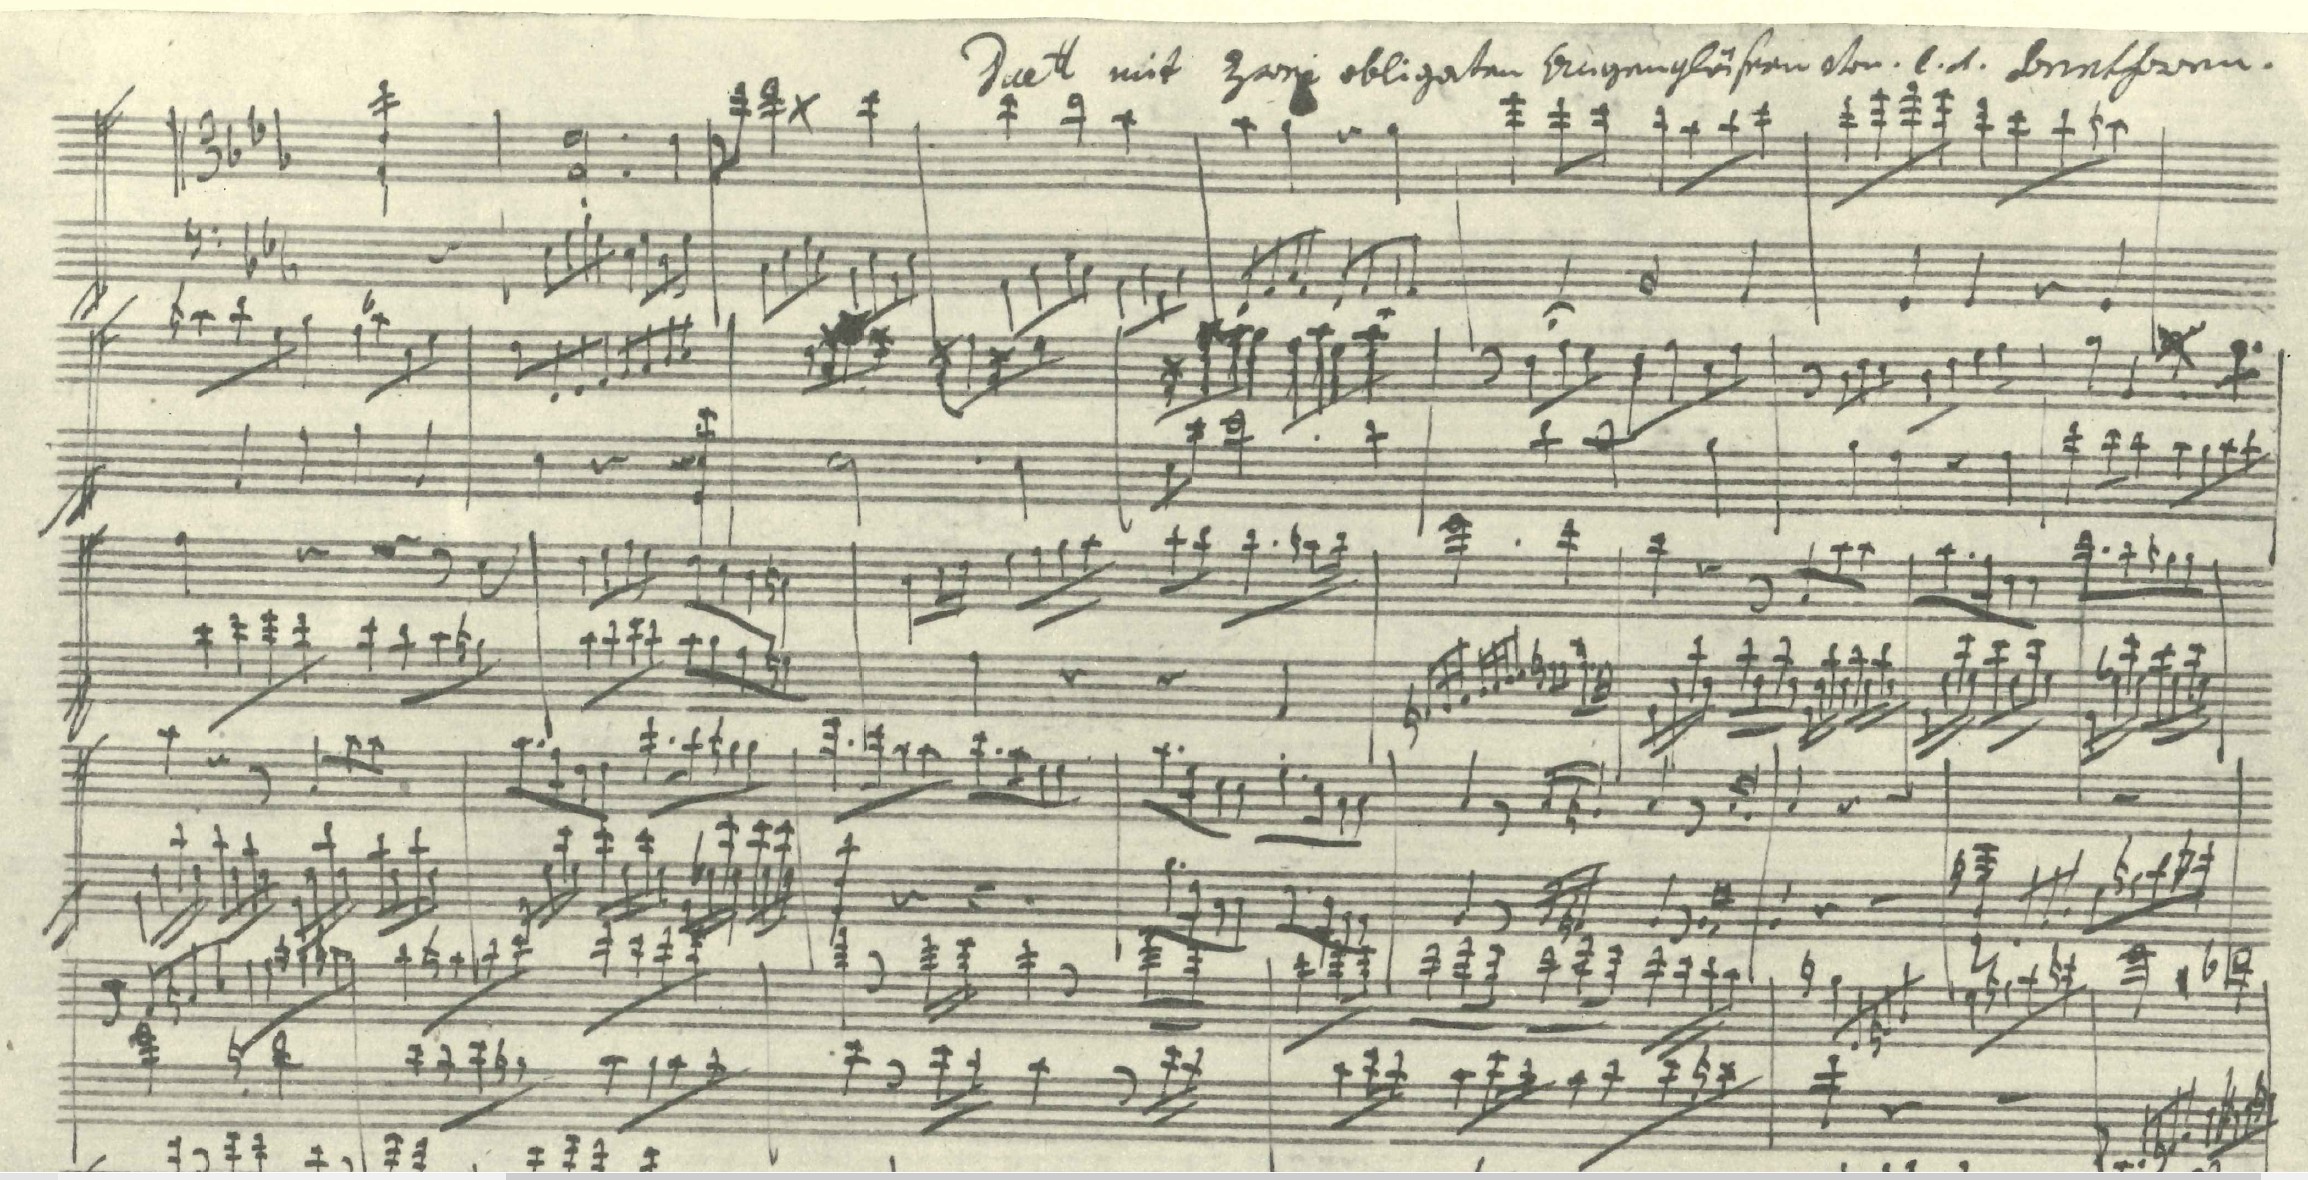 Duett mit zwei obligaten Augengläsern von L. v. Beethoven.